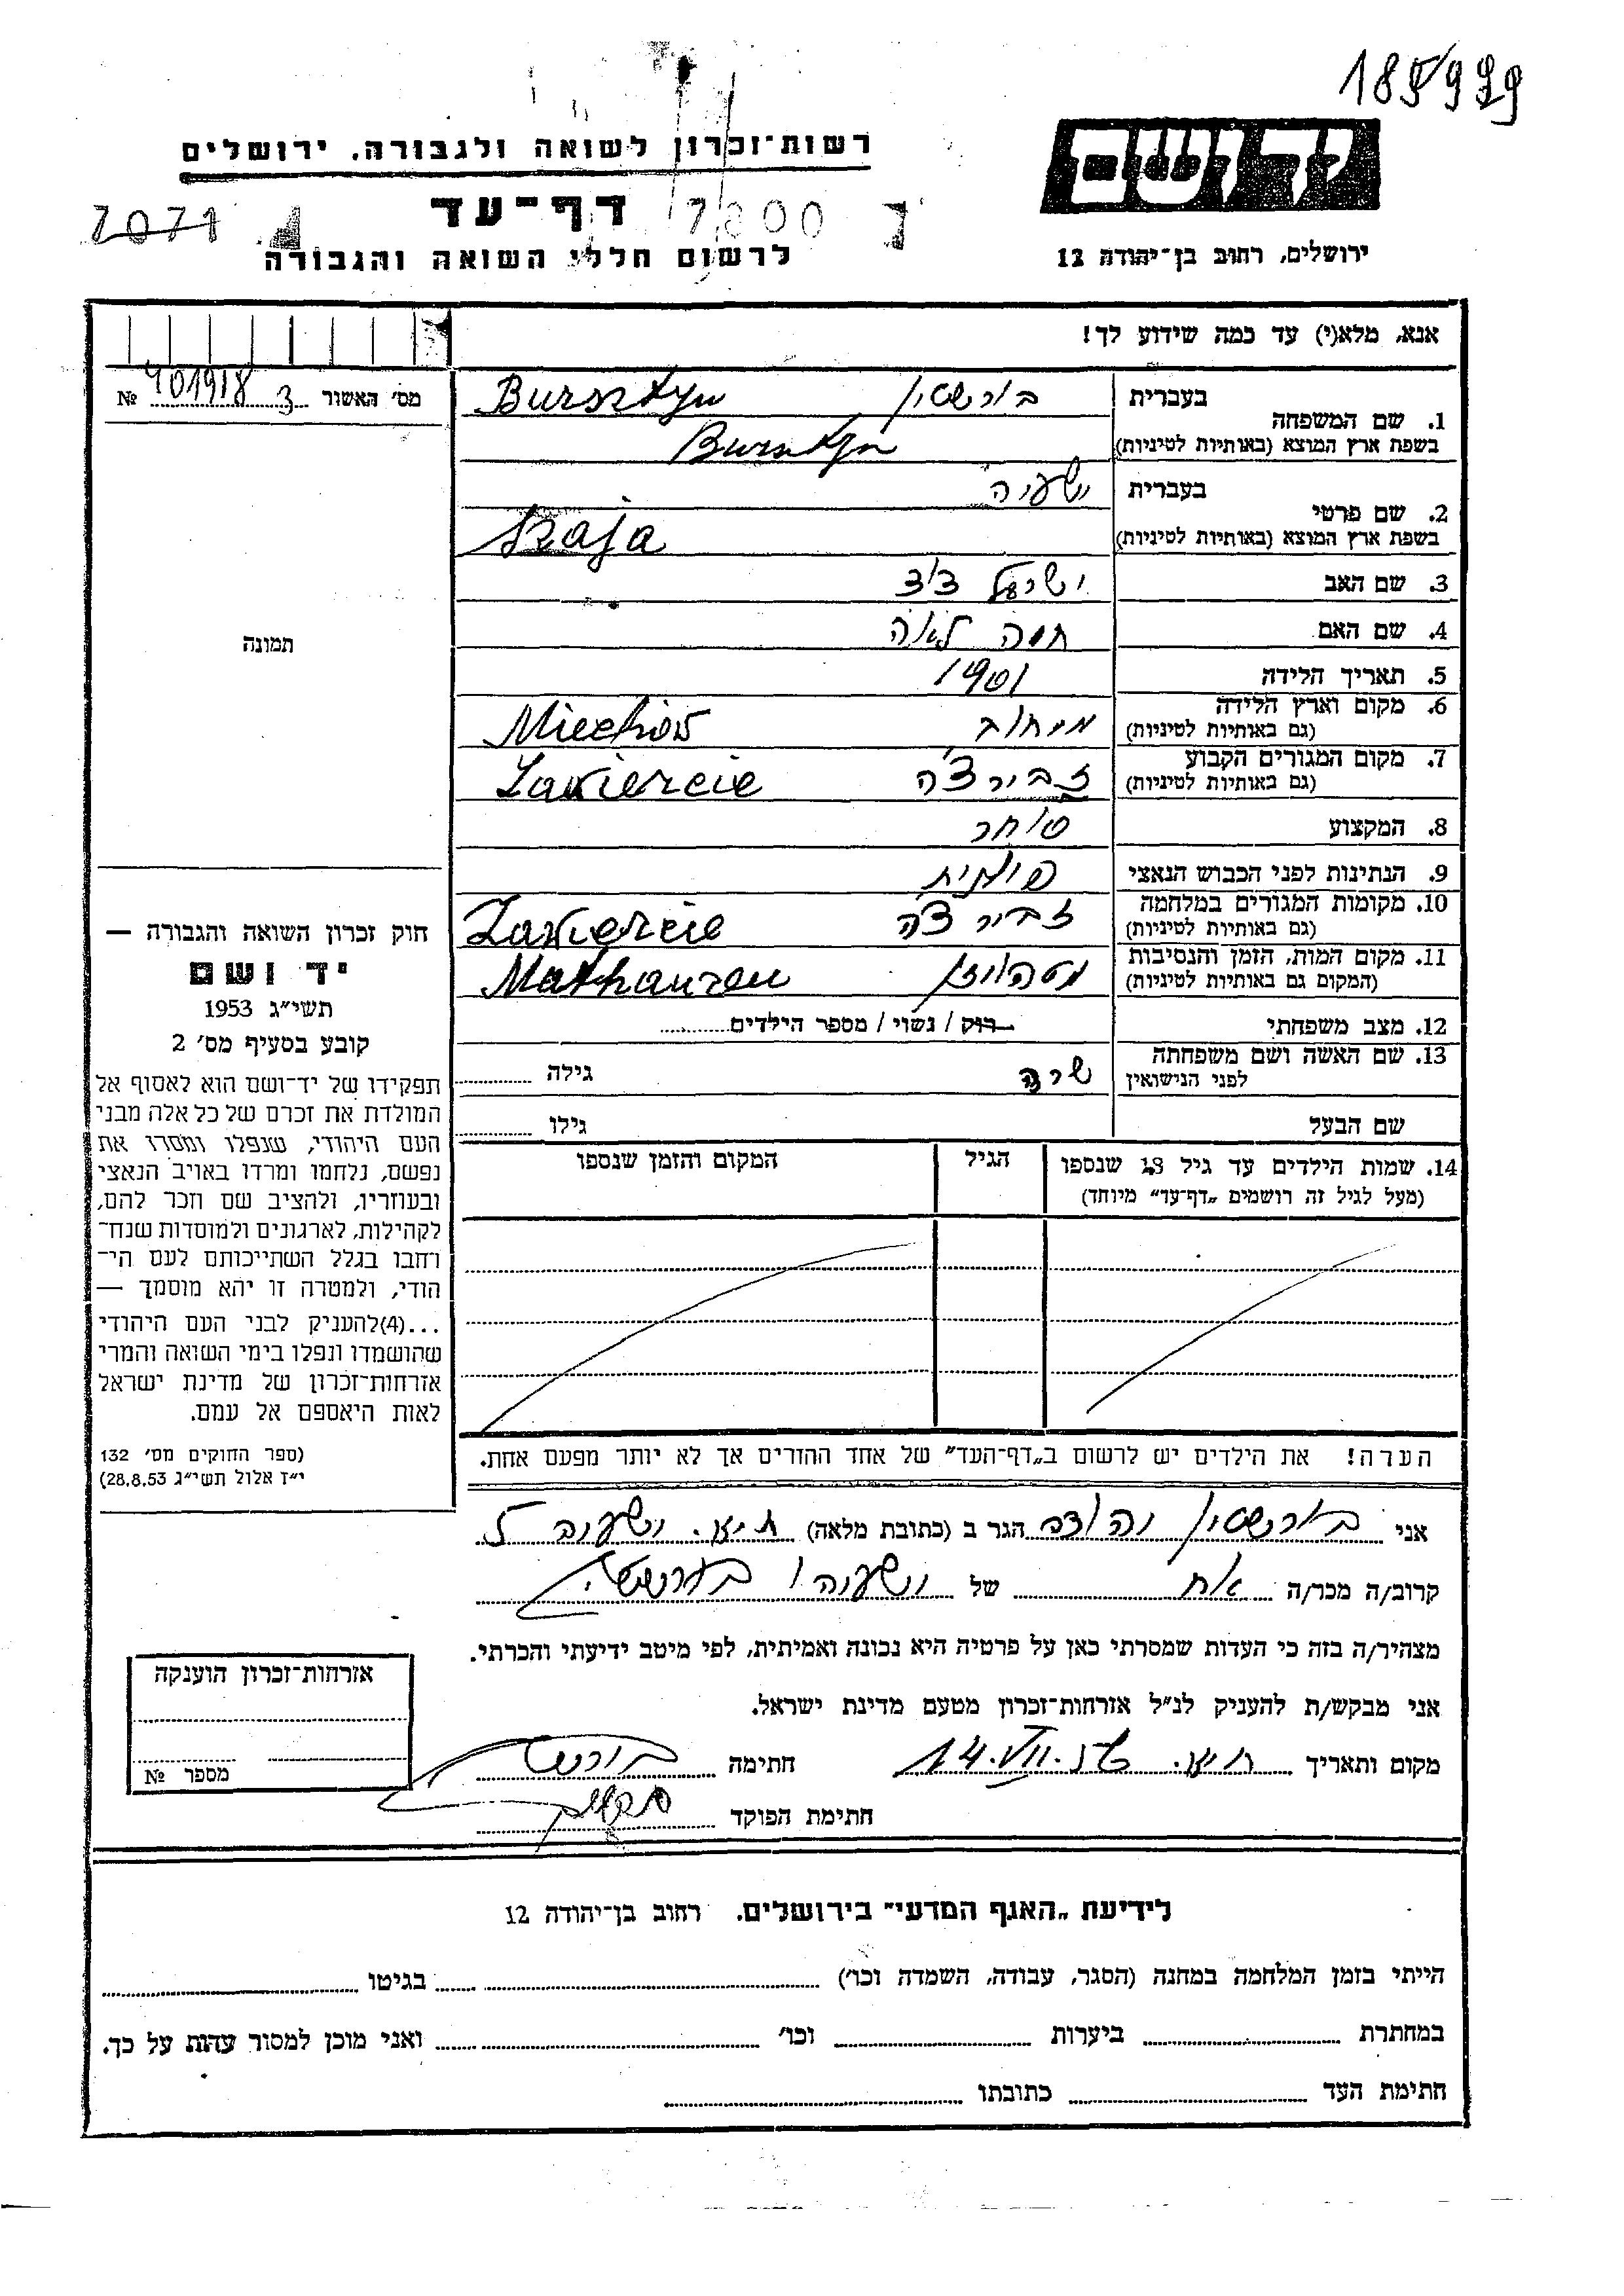 185939
רשות־זכרון לשואה ולגבורה, ירושלים
יד ושם
דף־עד
7071
7800
לרשום חללי השואה והגבורה
ירושלים, רחוב בן־יהודה 12
אנא, מלא(י) עד כמה שידוע לך!
מס׳ האשור 3 401918 №
1. שם המשפחה
בעברית בורשטין Bursztyn
בשפת ארץ המוצא (באותיות לטיניות) Bursztyn
2. שם פרטי
בעברית ישעיה
בשפת ארץ המוצא (באותיות לטיניות) Szaja
3. שם האב ישראל דוד
4. שם האם חוה לאה
5. תאריך הלידה 1901
6. מקום וארץ הלידה
(גם באותיות לטיניות) מיחוב Miechów
7. מקום המגורים הקבוע
(גם באותיות לטיניות) זבירצ'ה Zawiercie
8. המקצוע סוחר
9. הנתינות לפני הכבוש הנאצי פולנית
10. מקומות המגורים במלחמה
(גם באותיות לטיניות) זבירצ'ה Zawiercie
11. מקום המות, הזמן והנסיבות
(המקום גם באותיות לטיניות) מטהוזן Mathauzen
12. מצב משפחתי רוק / נשוי / מספר הילדים
13. שם האשה ושם משפחתה
לפני הנישואין שרה גילה
שם הבעל גילו
14. שמות הילדים עד גיל 18 שנספו
(מעל לגיל זה רושמים „דף־עד״ מיוחד)
הגיל
המקום והזמן שנספו
הערה! את הילדים יש לרשום ב„דף־העד״ של אחד ההורים אך לא יותר מפעם אחת.
תמונה
חוק זכרון השואה והגבורה —
יד ושם
תשי״ג 1953
קובע בסעיף מס׳ 2
תפקידו של יד־ושם הוא לאסוף אל
המולדת את זכרם של כל אלה מבני
העם היהודי, שנפלו ומסרו את
נפשם, נלחמו ומרדו באויב הנאצי
ובעוזריו, ולהציב שם וזכר להם,
לקהילות, לארגונים ולמוסדות שנח־
רחבו בגלל השתייכותם לעם הי־
הודי, ולמטרה זו יהא מוסמך —
...(4)להעניק לבני העם היהודי
שהושמדו ונפלו בימי השואה והמרי
אזרחות־זכרון של מדינת ישראל
לאות היאספם אל עמם.
(ספר החוקים מס׳ 132
י״ז אלול תשי״ג 28.8.53)
אני בורשטין יהודה הגר ב (כתובת מלאה)
קרוב/ה מכר/ה אח של ישעיהו בורשטין
מצהיר/ה בזה כי העדות שמסרתי כאן על פרטיה היא נכונה ואמיתית, לפי מיטב ידיעתי והכרתי.
אני מבקש/ת להעניק לנ״ל אזרחות־זכרון מטעם מדינת ישראל.
מקום ותאריך 14.VII. חתימה
חתימת הפוקד
אזרחות־זכרון הוענקה
מספר №
לידיעת „האגף המדעי״ בירושלים. רחוב בן־יהודה 12
הייתי בזמן המלחמה במחנה (הסגר, עבודה, השמדה וכו׳) בגיטו
במחתרת ביערות וכו׳ ואני מוכן למסור עדות על כך.
חתימת העד כתובתו